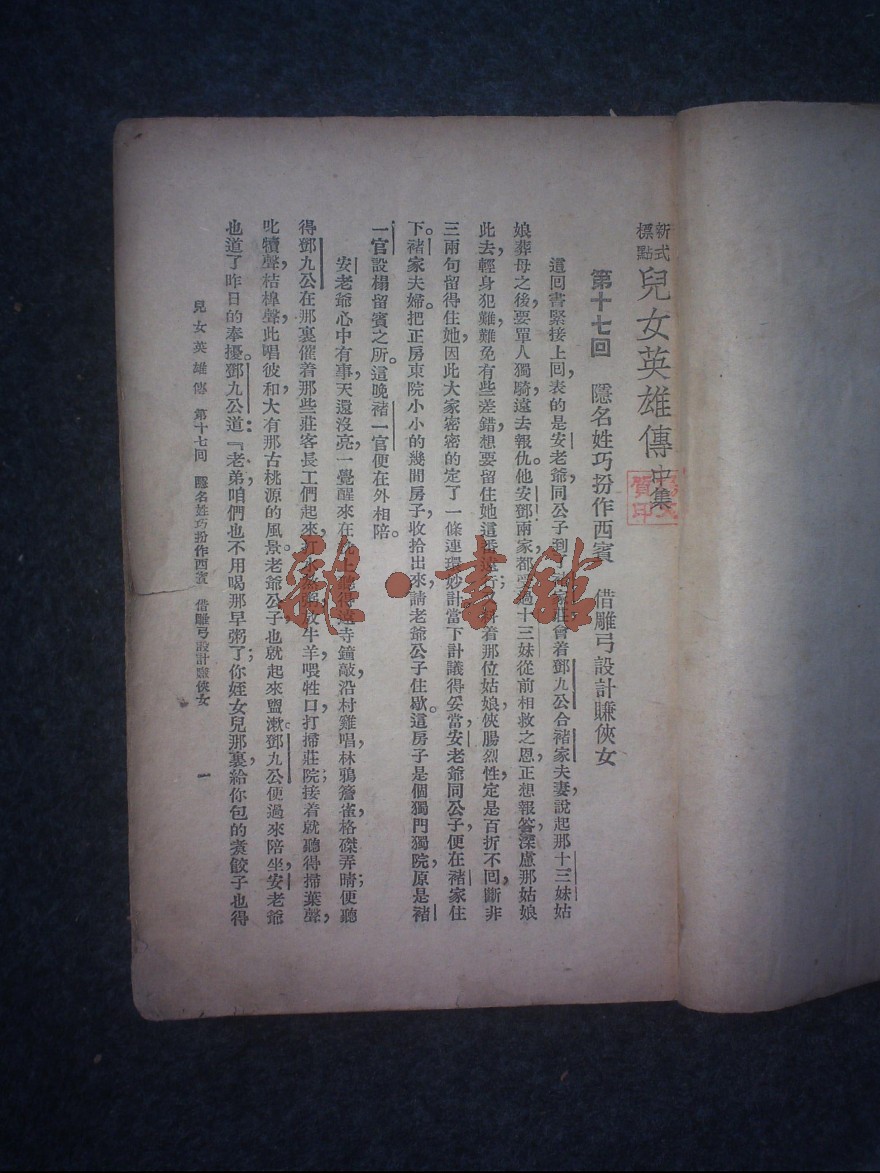 新式標點 兒女英雄傳 中集
第十七回　隱名姓巧扮作西賓　借雕弓設計賺俠女
這回書緊接上回，表的是安老爺同公子到了褚家莊會着鄧九公合褚家夫妻，說起那十三妹姑
娘葬母之後，要單人獨騎遠去報仇。他安鄧兩家都受過十三妹從前相救之恩，正想報答，深慮那姑娘
此去，輕身犯難，難免有些差錯，想要留住她這番遠行；又料着那位姑娘，俠腸烈性，定是百折不回，斷非
三兩句留得住她，因此大家密密的定了一條連環妙計。當下計議得妥當，安老爺同公子，便在褚家住
下。褚家夫婦。把正房東院小小的幾間房子，收拾出來，請老爺公子住歇。這房子是個獨門獨院，原是褚
一官設榻留賓之所。這晚褚一官便在外相陪。
安老爺心中有事，天還沒亮，一覺醒來，在上聽得遠寺鐘敲，沿村雞唱，林鴉簷雀，格磔弄晴；便聽
得鄧九公在那裏催着那些莊客長工們起來，打水放牛羊，喂牲口，打掃莊院；接着就聽得掃葉聲，
叱犢聲，桔槔聲，此唱彼和，大有那古桃源的風景。老爺公子也就起來盥漱。鄧九公便過來陪坐，安老爺
也道了昨日的奉擾。鄧九公道：『老弟，咱們也不用喝那早粥了；你姪女兒那裏，給你包的煮餃子也得
兒女英雄傳　第十七回　隱名姓巧扮作西賓　借雕弓設計賺俠女　一
雜·書館